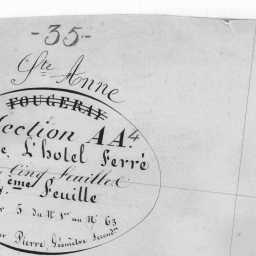 - 35 -
Ste Anne
FOUGERAY
Section AA4
L'hotel Ferré
Cinq Feuilles
ème Feuille
5 du No 1er au No 63
Pierre Géomètre Second